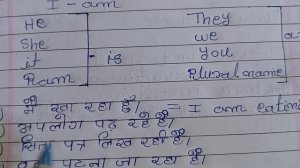 I - am
He They
She we
it - is you a
Ram Plural name
मैं खा रहा हूँ। = I am eatin
आपलोग पढ़ रहे हैं।
सिता पत्र लिख रही है।
पटना जा रहा है।